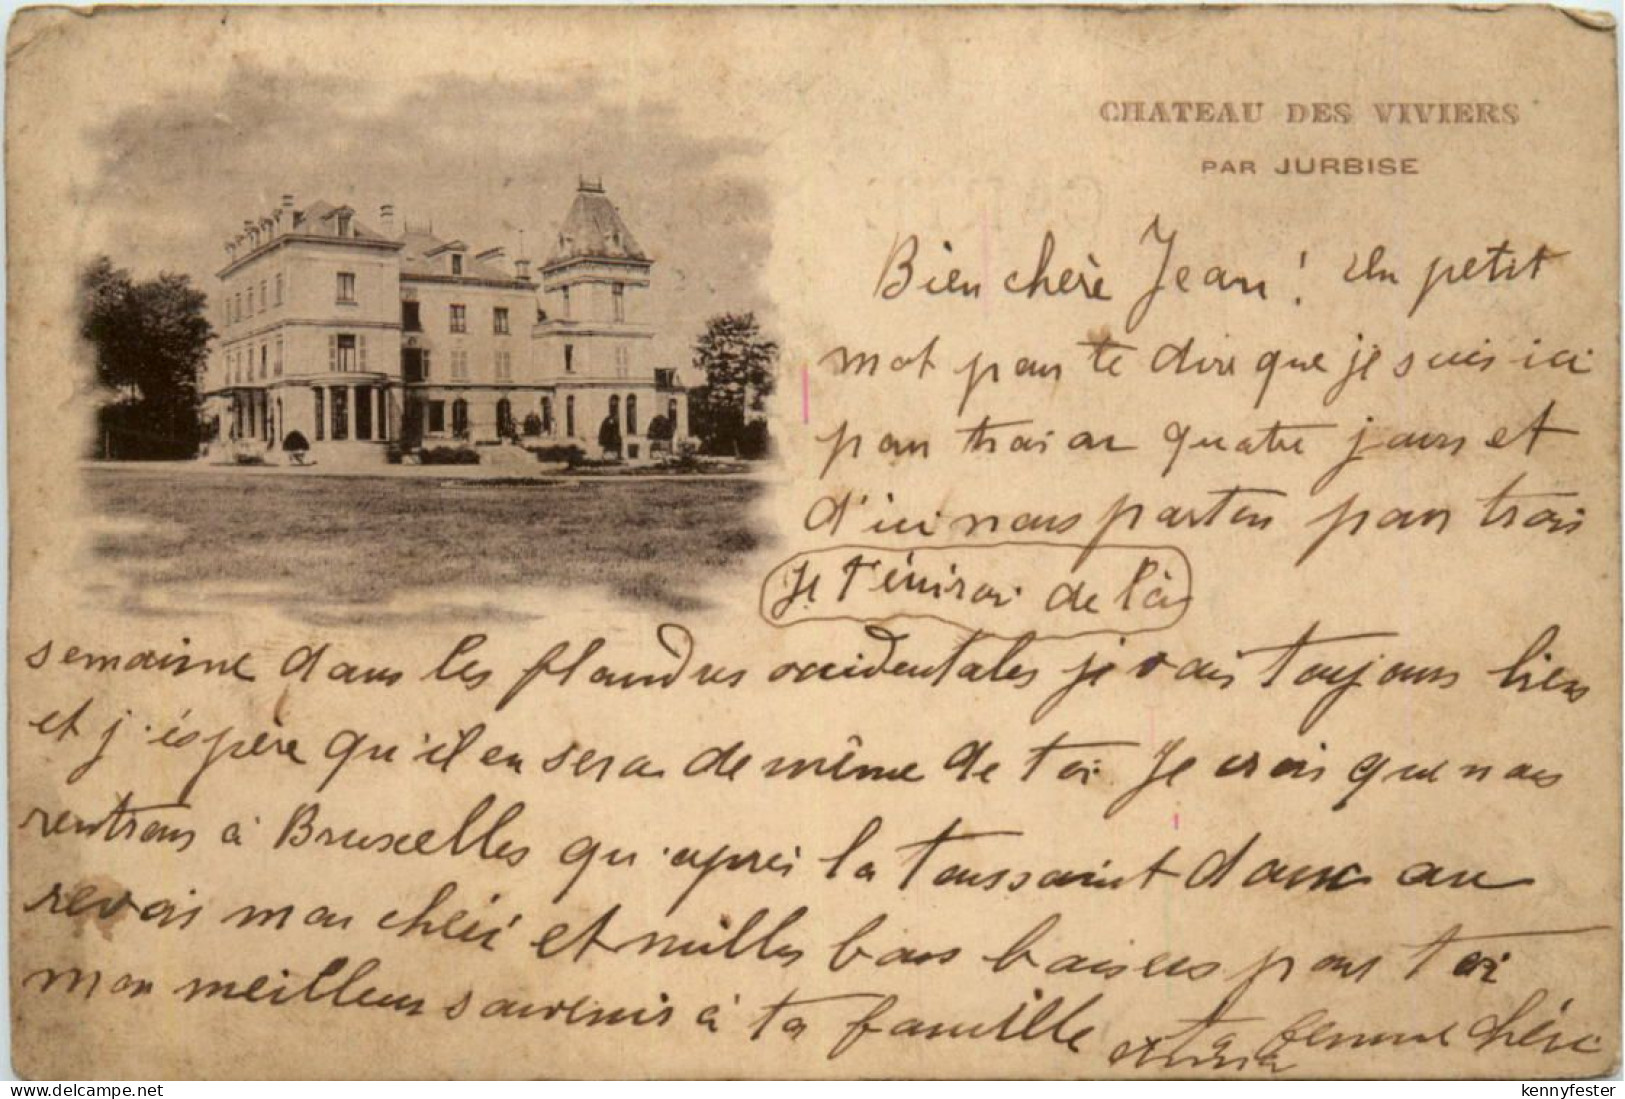 CHATEAU DES VIVIERS
PAR JURBISE
Bien chère Jean! Un petit
mot pour te dire que je suis ici
pour trois ou quatre jours et
d'ici nous parton pour trois
Je t'éniroi de là
semaisne dans les flandres occidentales je vais toujours bien
et j'éspère qu'il en sera de même de toi Je crois que nous
rentrons à Bruxelles qu'après la Toussaint donc au
revois mon chéri et milles bons baisers pour toi
mon meilleur souvenir à ta famille ta femme chérie
delcampe.net
kennyfester